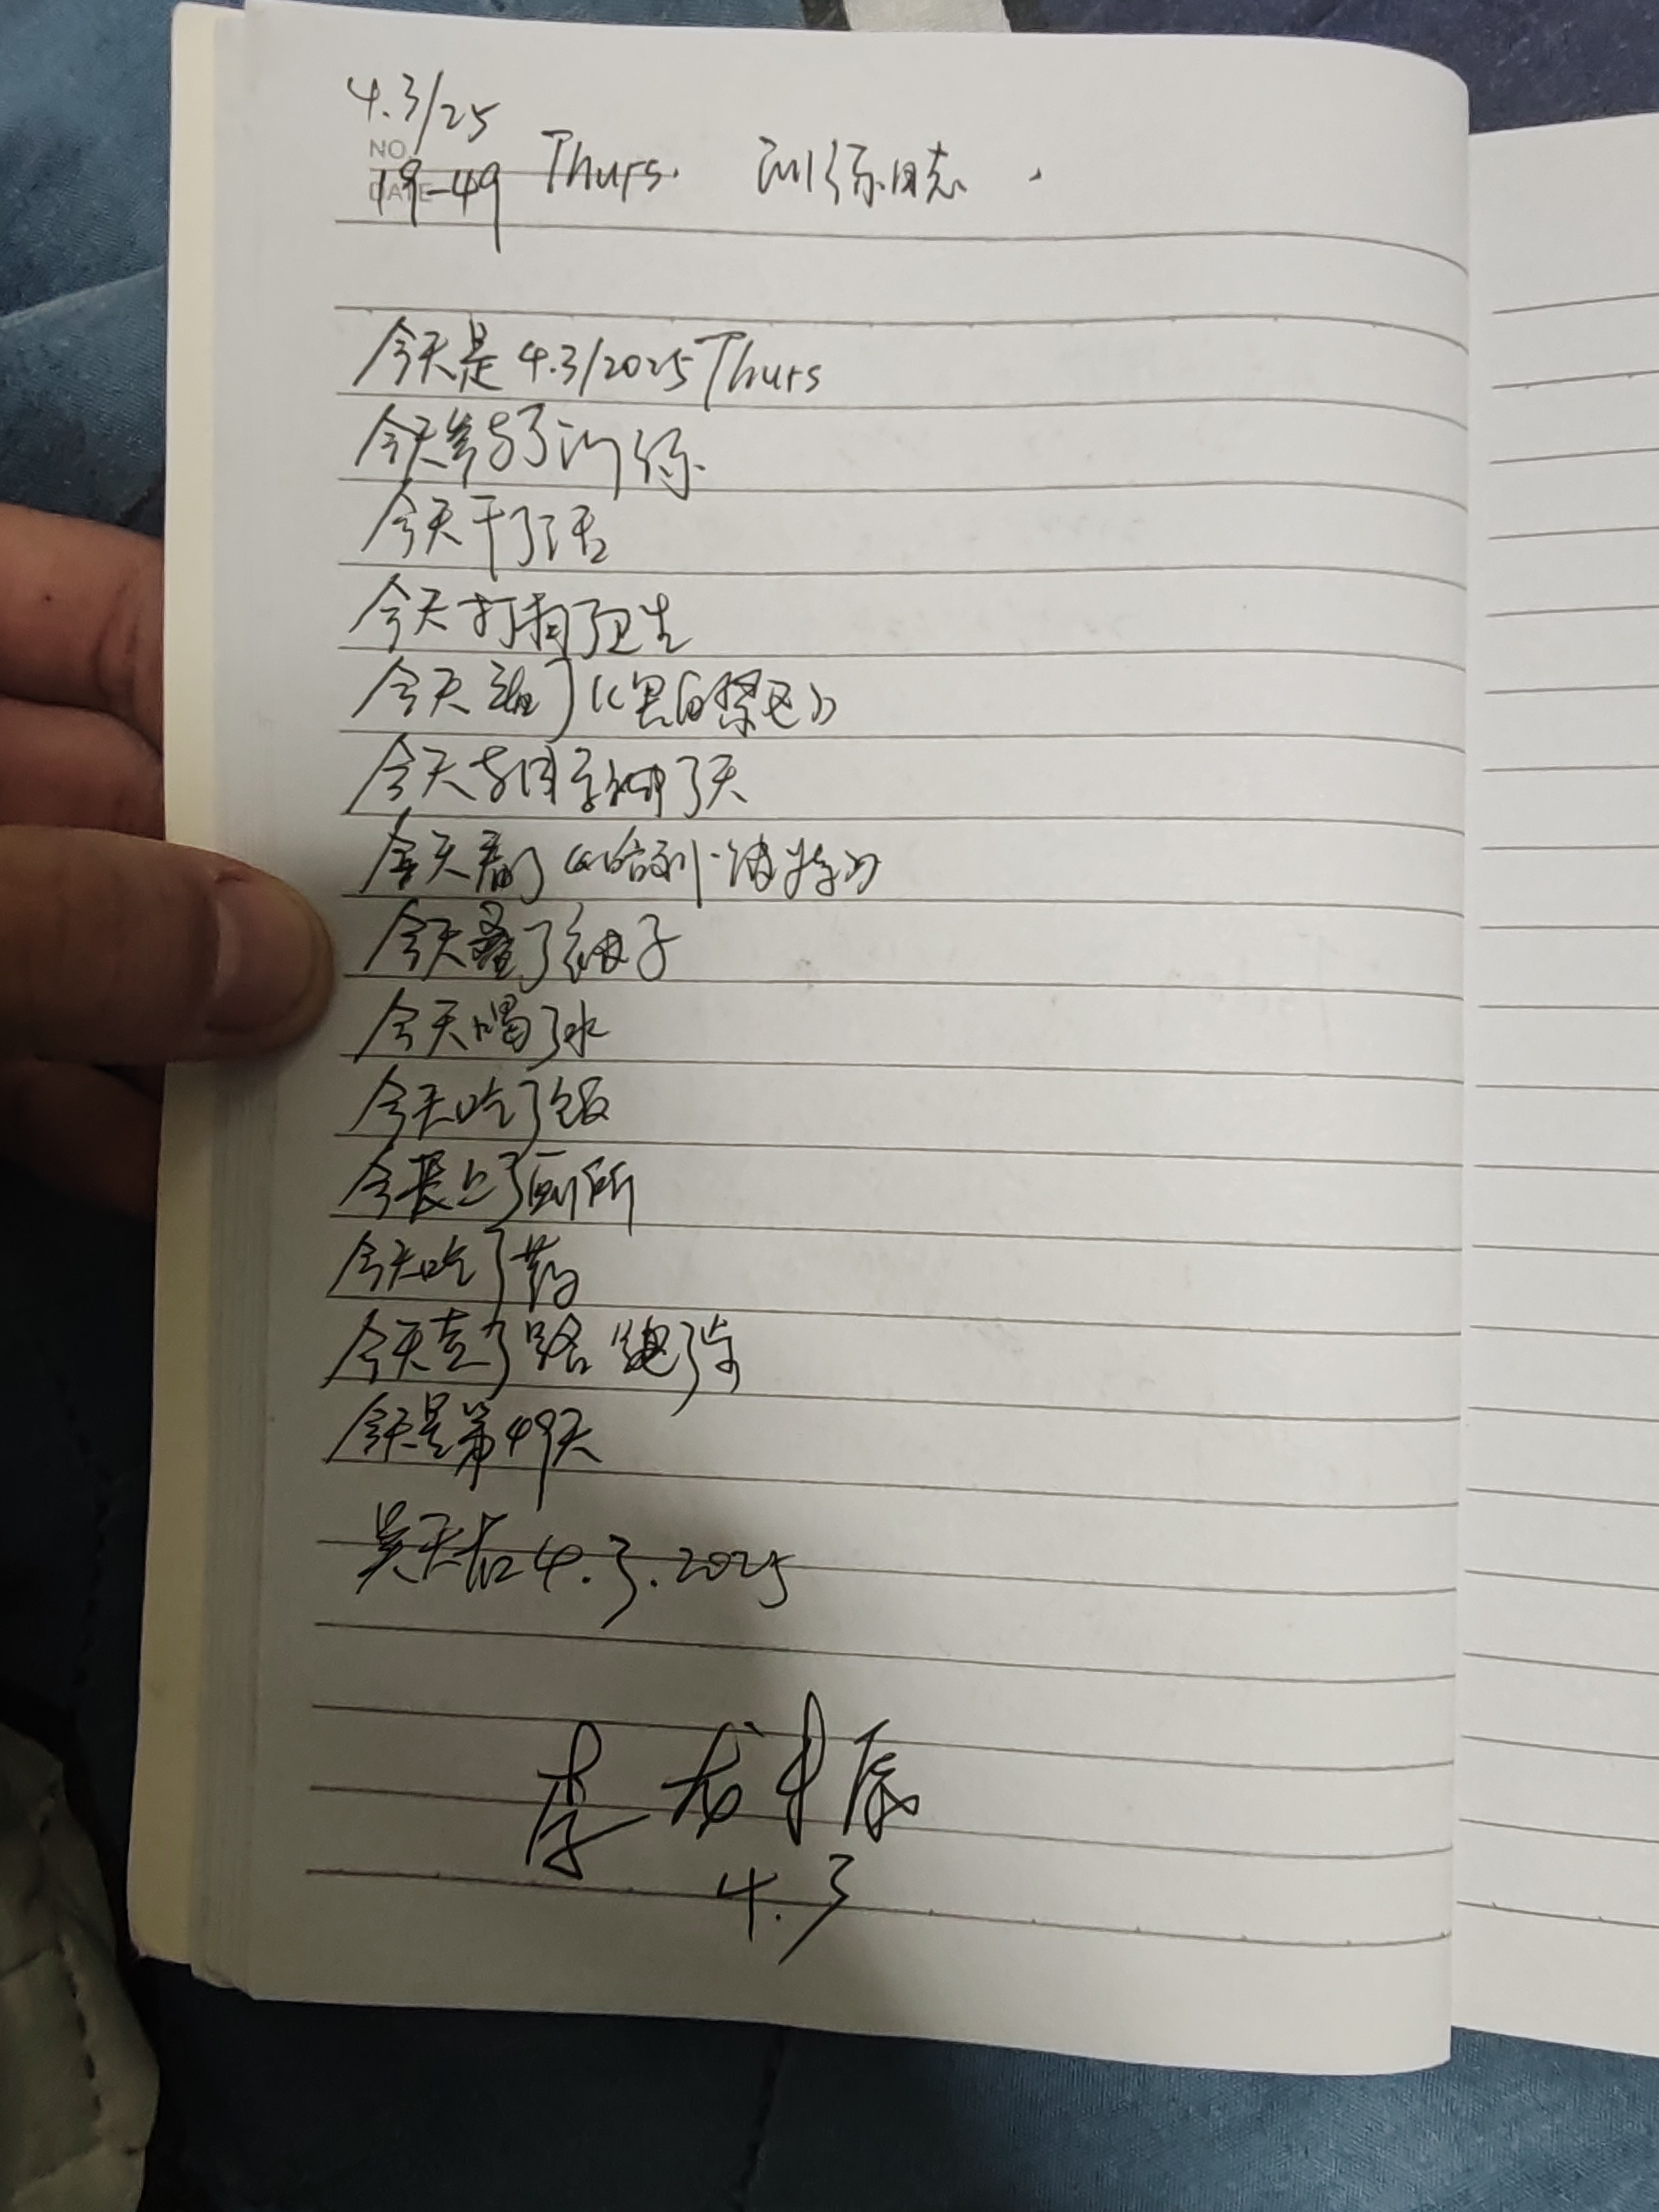 4.3/25
NO.
DATE
19-49 Thurs. 训练日志.
今天是4.3/2025Thurs
今天参与了训练.
今天干了活
今天打扫了卫生
今天看了《黑白禁区》
今天与同学聊了天
今天看了《哈利·波特》
今天叠了被子
今天喝了水
今天吃了饭
今天上了厕所
今天吃了药
今天走了路 跑了步
今天是第49天
吴天佑4.3.2025
李
4.3